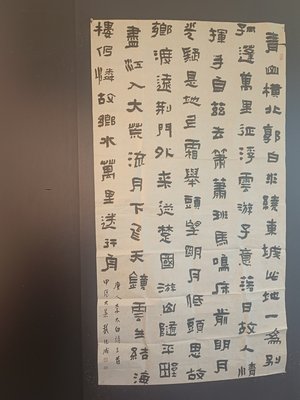 青山橫北郭白水繞東城此地一為別
孤蓬萬里征浮雲游子意落日故人情
揮手自茲去蕭蕭班馬鳴床前明月
光疑是地上霜舉頭望明月低頭思故
鄉渡遠荊門外來從楚國游山隨平野
盡江入大荒流月下飛天鏡雲生結海
樓仍憐故鄉水萬里送行舟
唐人李太白詩三首
甲辰之夏